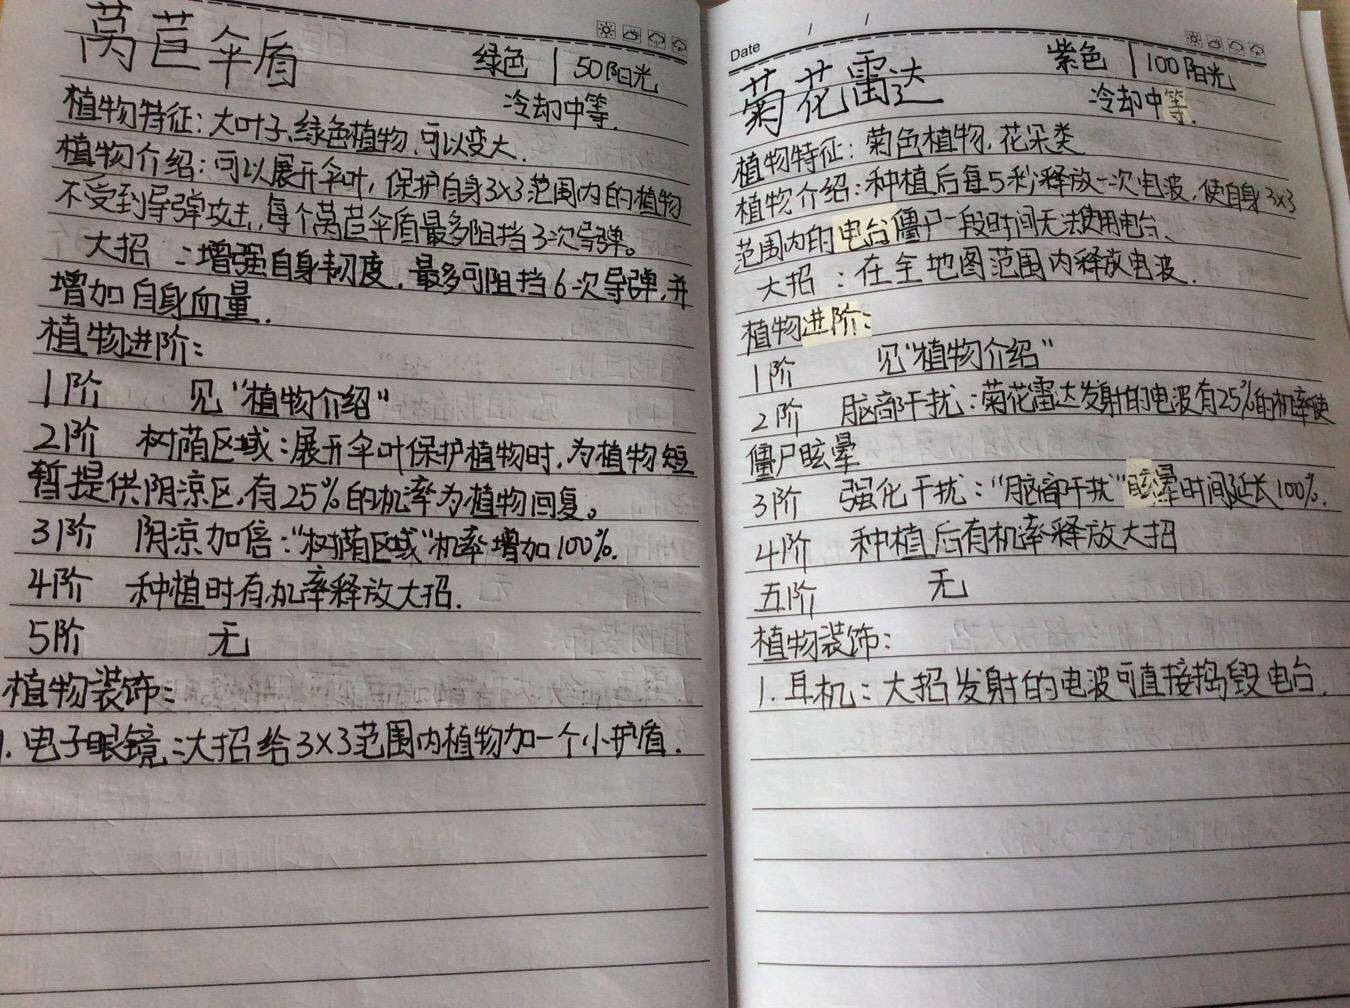 莴苣伞盾
绿色 | 50阳光
冷却中等.
植物特征:大叶子,绿色植物,可以变大.
植物介绍:可以展开伞叶,保护自身3×3范围内的植物
不受到导弹攻击,每个莴苣伞盾最多阻挡3次导弹。
大招:增强自身韧度,最多可阻挡6次导弹,并
增加自身血量.
植物进阶:
1阶 见“植物介绍”
2阶 树荫区域:展开伞叶保护植物时,为植物短
暂提供阴凉区,有25%的机率为植物回复。
3阶 阴凉加倍:“树荫区域”机率增加100%.
4阶 种植时有机率释放大招.
5阶 无
植物装饰:
1.电子眼镜:大招给3×3范围内植物加一个小护盾.
Date / /
菊花雷达
紫色 | 100阳光
冷却中等.
植物特征:菊色植物,花朵类
植物介绍:种植后每5秒释放一次电波,使自身3×3
范围内的电台僵尸一段时间无法使用电台、
大招:在全地图范围内释放电波.
植物进阶:
1阶 见“植物介绍”
2阶 脑部干扰:菊花雷达发射的电波有25%的机率使
僵尸眩晕
3阶 强化干扰:“脑部干扰”眩晕时间延长100%.
4阶 种植后有机率释放大招
五阶 无
植物装饰:
1.耳机:大招发射的电波可直接捣毁电台.